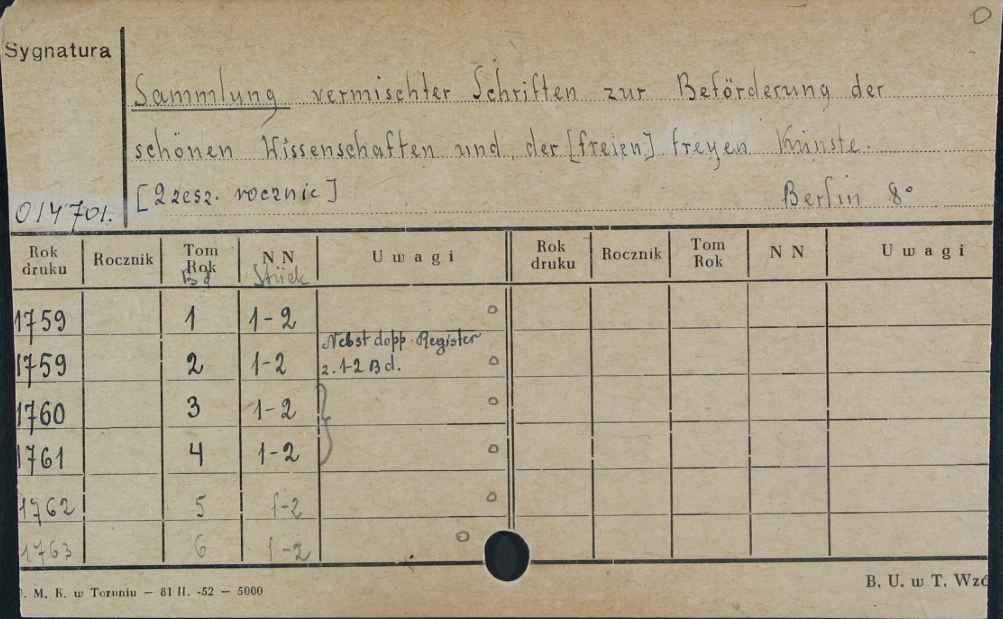 Sygnatura
Sammlung vermischter Schriften zur Beförderung der
schönen Wissenschaften und der [freien] freyen Künste.
[2 zesz. rocznie]
Berlin 8°
014701.
Rok druku Rocznik Tom Rok N N U w a g i Rok druku Rocznik Tom Rok N N U w a g i
Bd Stück
1759 1 1-2
1759 2 1-2 Nebst dopp. Register
z. 1-2 Bd.
1760 3 1-2
1761 4 1-2
1762 5 1-2
1763 6 1-2
. M. K. w Toruniu — 81 II. -52 — 5000
B. U. w T. Wzó